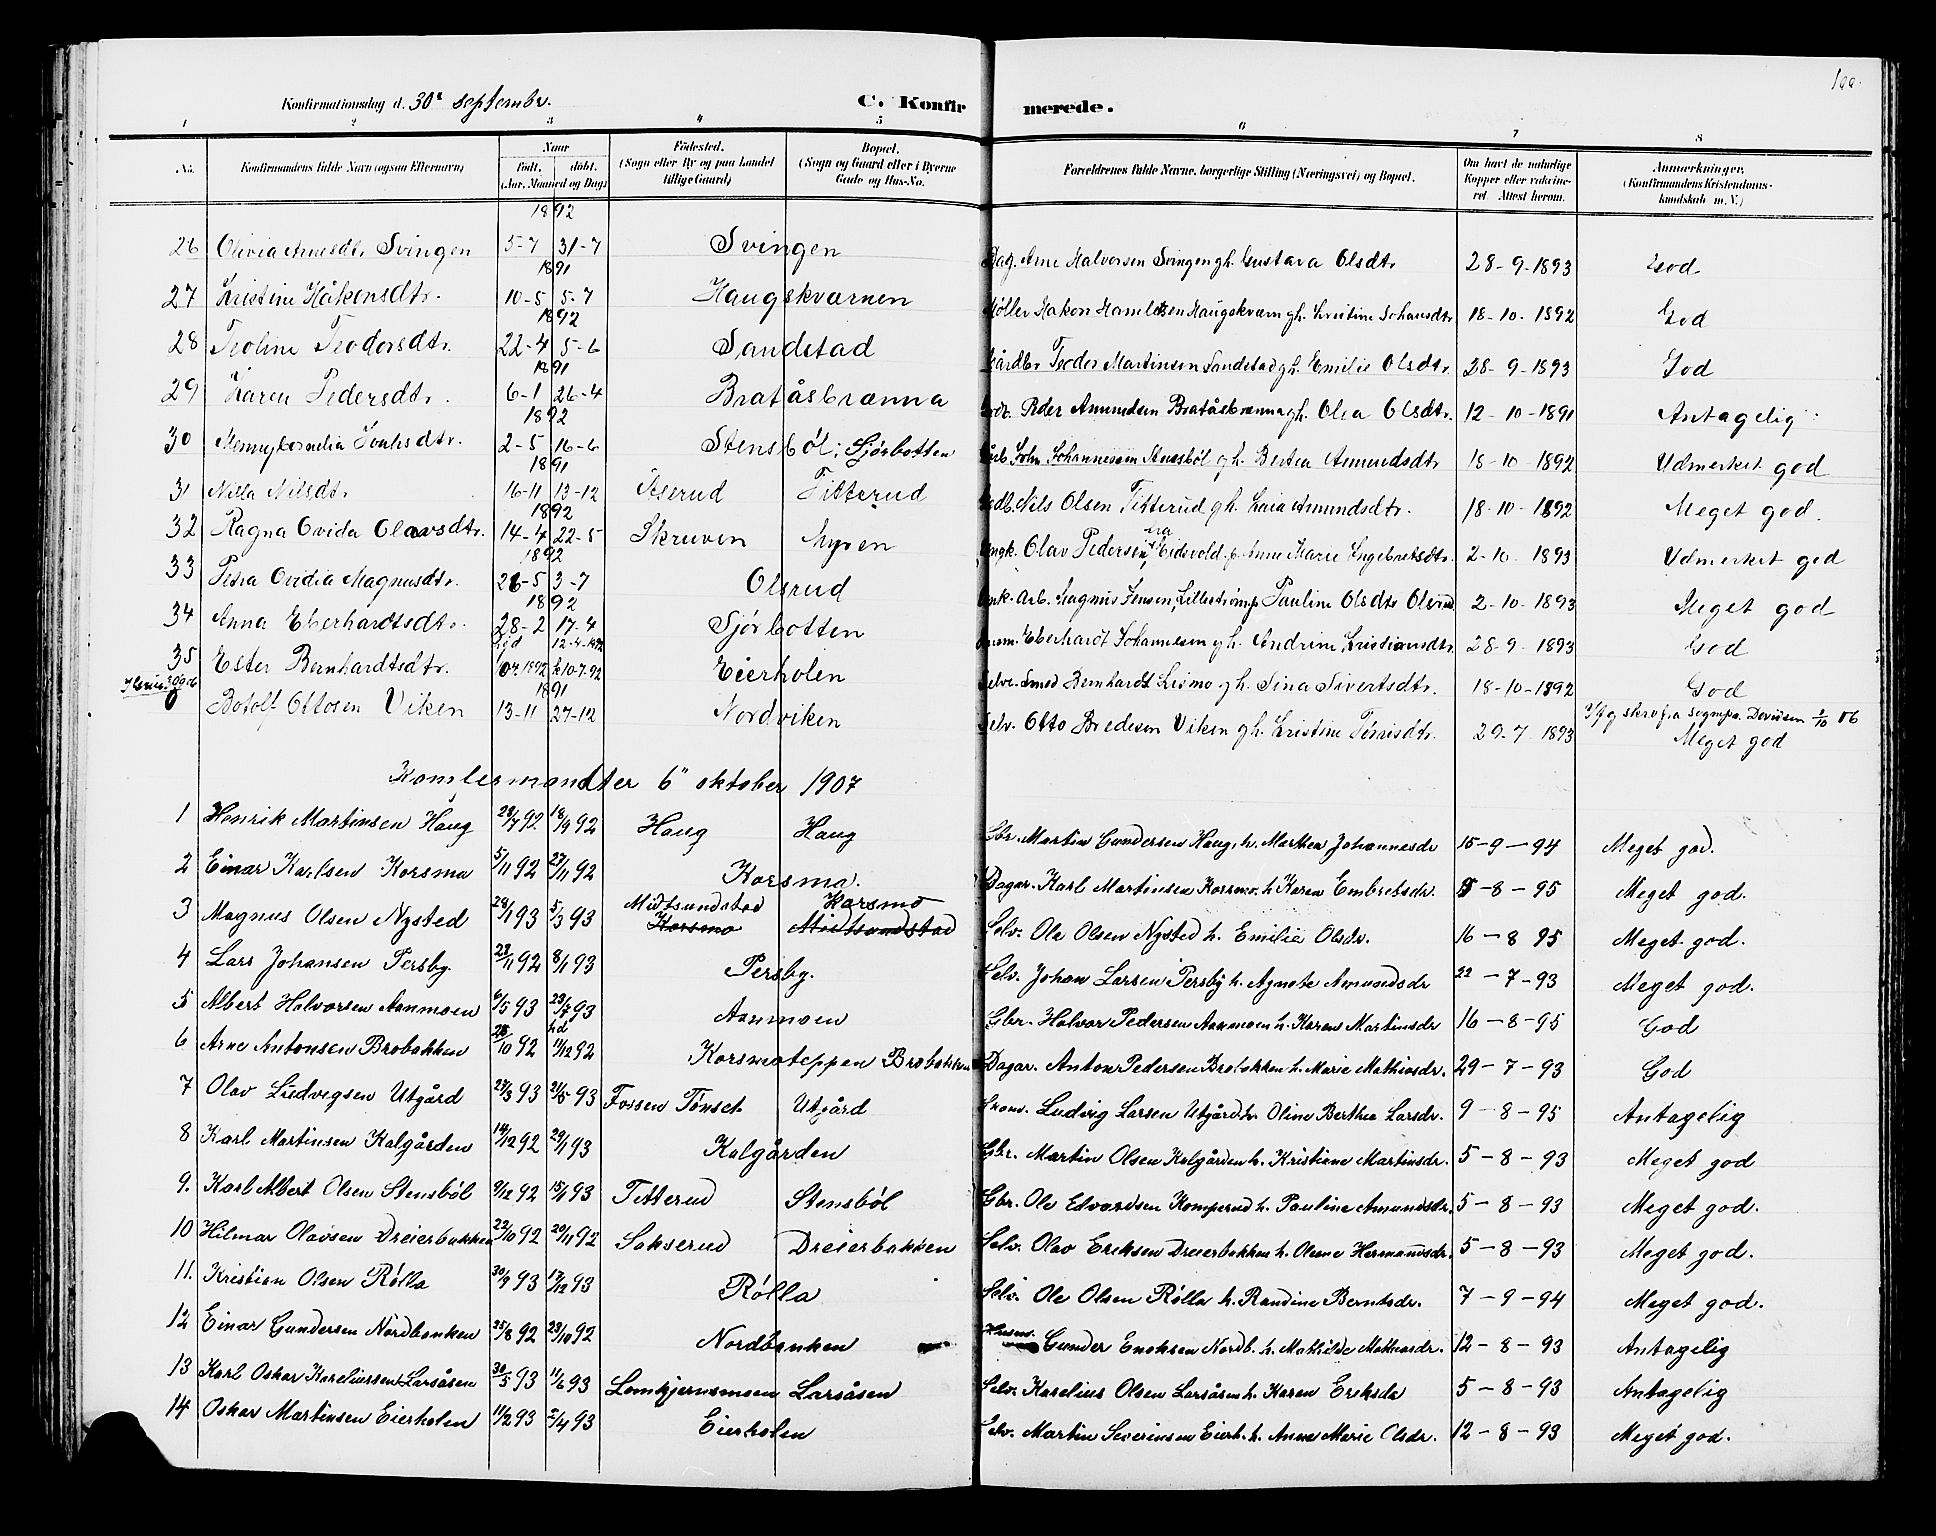 Konfirmationsdag d. 30' september. C. Konfirmerede. 100.
1 2 3 4 5 6 7 8
No. Konfirmandens fulde Navn (ogsaa Efternavn) Naar Født, døbt. (Aar, Maaned og Dag) Fødested. (Sogn eller By og paa Landet tillige Gaard) Bopæl. (Sogn og Gaard eller i Byerne Gade og Hus-No. Forældrenes fulde Navne, borgerlige Stilling (Næringsvei) og Bopæl. Om havt de naturlige Kopper eller vakcineret. Attest herom. Anmærkninger. (Konfirmandens Kristendomskundskab m. V.)
1892
26 Olivia Arnesdtr Svingen 5-7 31-7 Svingen Dag. Arne Halvorsen Svingen gh. Gustava Olsdtr 28-9-1893 God
1891
27 Kristine Håkensdtr. 10-5 5-7 Haugskværnen Møller Hakon Hamletsen Haugskværn gh. Kristine Johansdtr 18-10-1892 God
1892
28 Teoline Teodorsdtr. 22-4 5-6 Sandstad Gårdbr Teodor Martinsen Sandstad gh. Emilie Olsdtr. 28-9-1893 God
1891
29 Karen Pedersdtr. 6-1 26-4 Bratåsbrænna Peder Amundsen Bratåsbrænna gh. Olea Olsdtr. 12-10-1891 Antagelig
1892
30 Henny Cornelia Johsdtr. 2-5 16-6 Stensbøl; Sjørbotten John Johannessen Stensbøl gh. Bertea Amundsdtr 18-10-1892 Udmerket god
1891
31 Nilla Nilsdtr 16-11 13-12 Åserud Titterud Nils Olsen Titterud gh. Laia Amundsdtr. 18-10-1892 Meget god.
1892
32 Ragna Ovida Olavsdtr. 14-4 22-5 Skruven Myren Ungk. Olav Pedersen fra Eidsvold p. Anne Marie Engebretsdtr. 2-10-1893 Udmerket god
1892
33 Petra Ovidia Magnusdtr. 26-5 3-7 Olsrud Arb. Magnus Jensen, Lillestrøm p Pauline Olsdtr Olsrud 2-10-1893 Meget god
1892
34 Anna Eberhardtsdtr. 28-2 17-4 Sjørbotten Eberhardt Johannesen gh. Andrine Kristiansdtr 28-9-1893 God
35 Ester Bernhardtsdtr. 10-7-92 Eierholen Selve. Smed Bernhardt Lismo gh. Sina Sivertsdtr. 18-10-1892 God
1891
Botolf Ottosen Viken 13-11 27-12 Nordviken Selv. Otto Bredesen Viken gh. Kristine Tenisdtr. 29-7-1893 Meget god
Konfermandter 6" oktober 1907
1 Henrik Martinsen Haug 29/7 92 18/9 92 Haug Haug Gbr. Martin Gundersen Haug, h. Marthea Johannesdr 15-9-94 Meget god.
2 Einar Karlsen Korsmo 5/11 92 27/11 92 Korsmo. Dagar. Karl Martinsen Korsmo h Karen Embretsdr. 5-8-95 Meget god.
3 Magnus Olsen Nysted 28/1 93 5/3 93 Midtsundstad Korsmo Selv. Ole Olsen Nysted h. Emilie Olsdr. 16-8 95 Meget god.
Korsmo Midtsundstad
4 Lars Johansen Persby. 23/11 92 8/1 93 Persby. Selv. Johan Larsen Persby h. Agnete Amundsdr 22-7-93 Meget god.
5 Albert Halvorsen Aanmoen 6/5 93 23/7 93 Aanmoen Gbr. Halvor Pedersen Aanmoen h. Karen Martinsdr 16-8-95 God
6 Arne Antonsen Brobakken 28/10 92 hd 11/12 92 Korsmoteppen Brobakken Dagar. Anton Pedersen Brobakken h. Marie Mathiasdr. 29-7-93 God
7 Olav Ludvigsen Utgård 27/3 93 21/5 93 Fossen Tønset Utgård Ludvig Larsen Utgård h. Oline Berthea Larsdr. 9-8-95 Antagelig
8 Karl Martinsen Kalgården 14/12 92 29/1 93 Kalgården Gbr. Martin Olsen Kalgården h. Kristiane Martinsdr. 5-8-93 Meget god
9. Karl Albert Olsen Stensbøl 9/12 92 15/1 93 Titterud Stensbøl Gbr. Ole Edvardsen Komperud h. Pauline Amundsdr. 5-8-93 Meget god.
10 Hilmar Olavsen Dreierbakken 22/10 92 20/11 92 Sakserud Dreierbakken Selv. Olav Eriksen Dreierbakken h. Olene Hermandsdr. 5-8-93 Meget god.
11. Kristian Olsen Rølla 30/9 93 17/12 93 Rølla Selv. Ole Olsen Rølla h. Randine Berntsdr. 7-9-94 Meget god.
12 Einar Gundersen Nordbanken 25/8 92 23/10 92 Nordbanken Husm. Gunder Enoksen Nordb. h. Mathilde Mathiasdr. 12-8-93 Antagelig
13 Karl Oskar Kareliussen Larsåsen 30/5 93 11/6 93 Lomtjernsmoen Larsåsen Selv. Karelius Olsen Larsåsen h. Karen Eriksdr 5-8-93 Antagelig
14 Oskar Martinsen Eierholen 11/2 93 2/4 93 Eierholen Selv. Martin Severinsen Eierh. h. Anne Marie Olsdr. 12-8-93 Meget god.